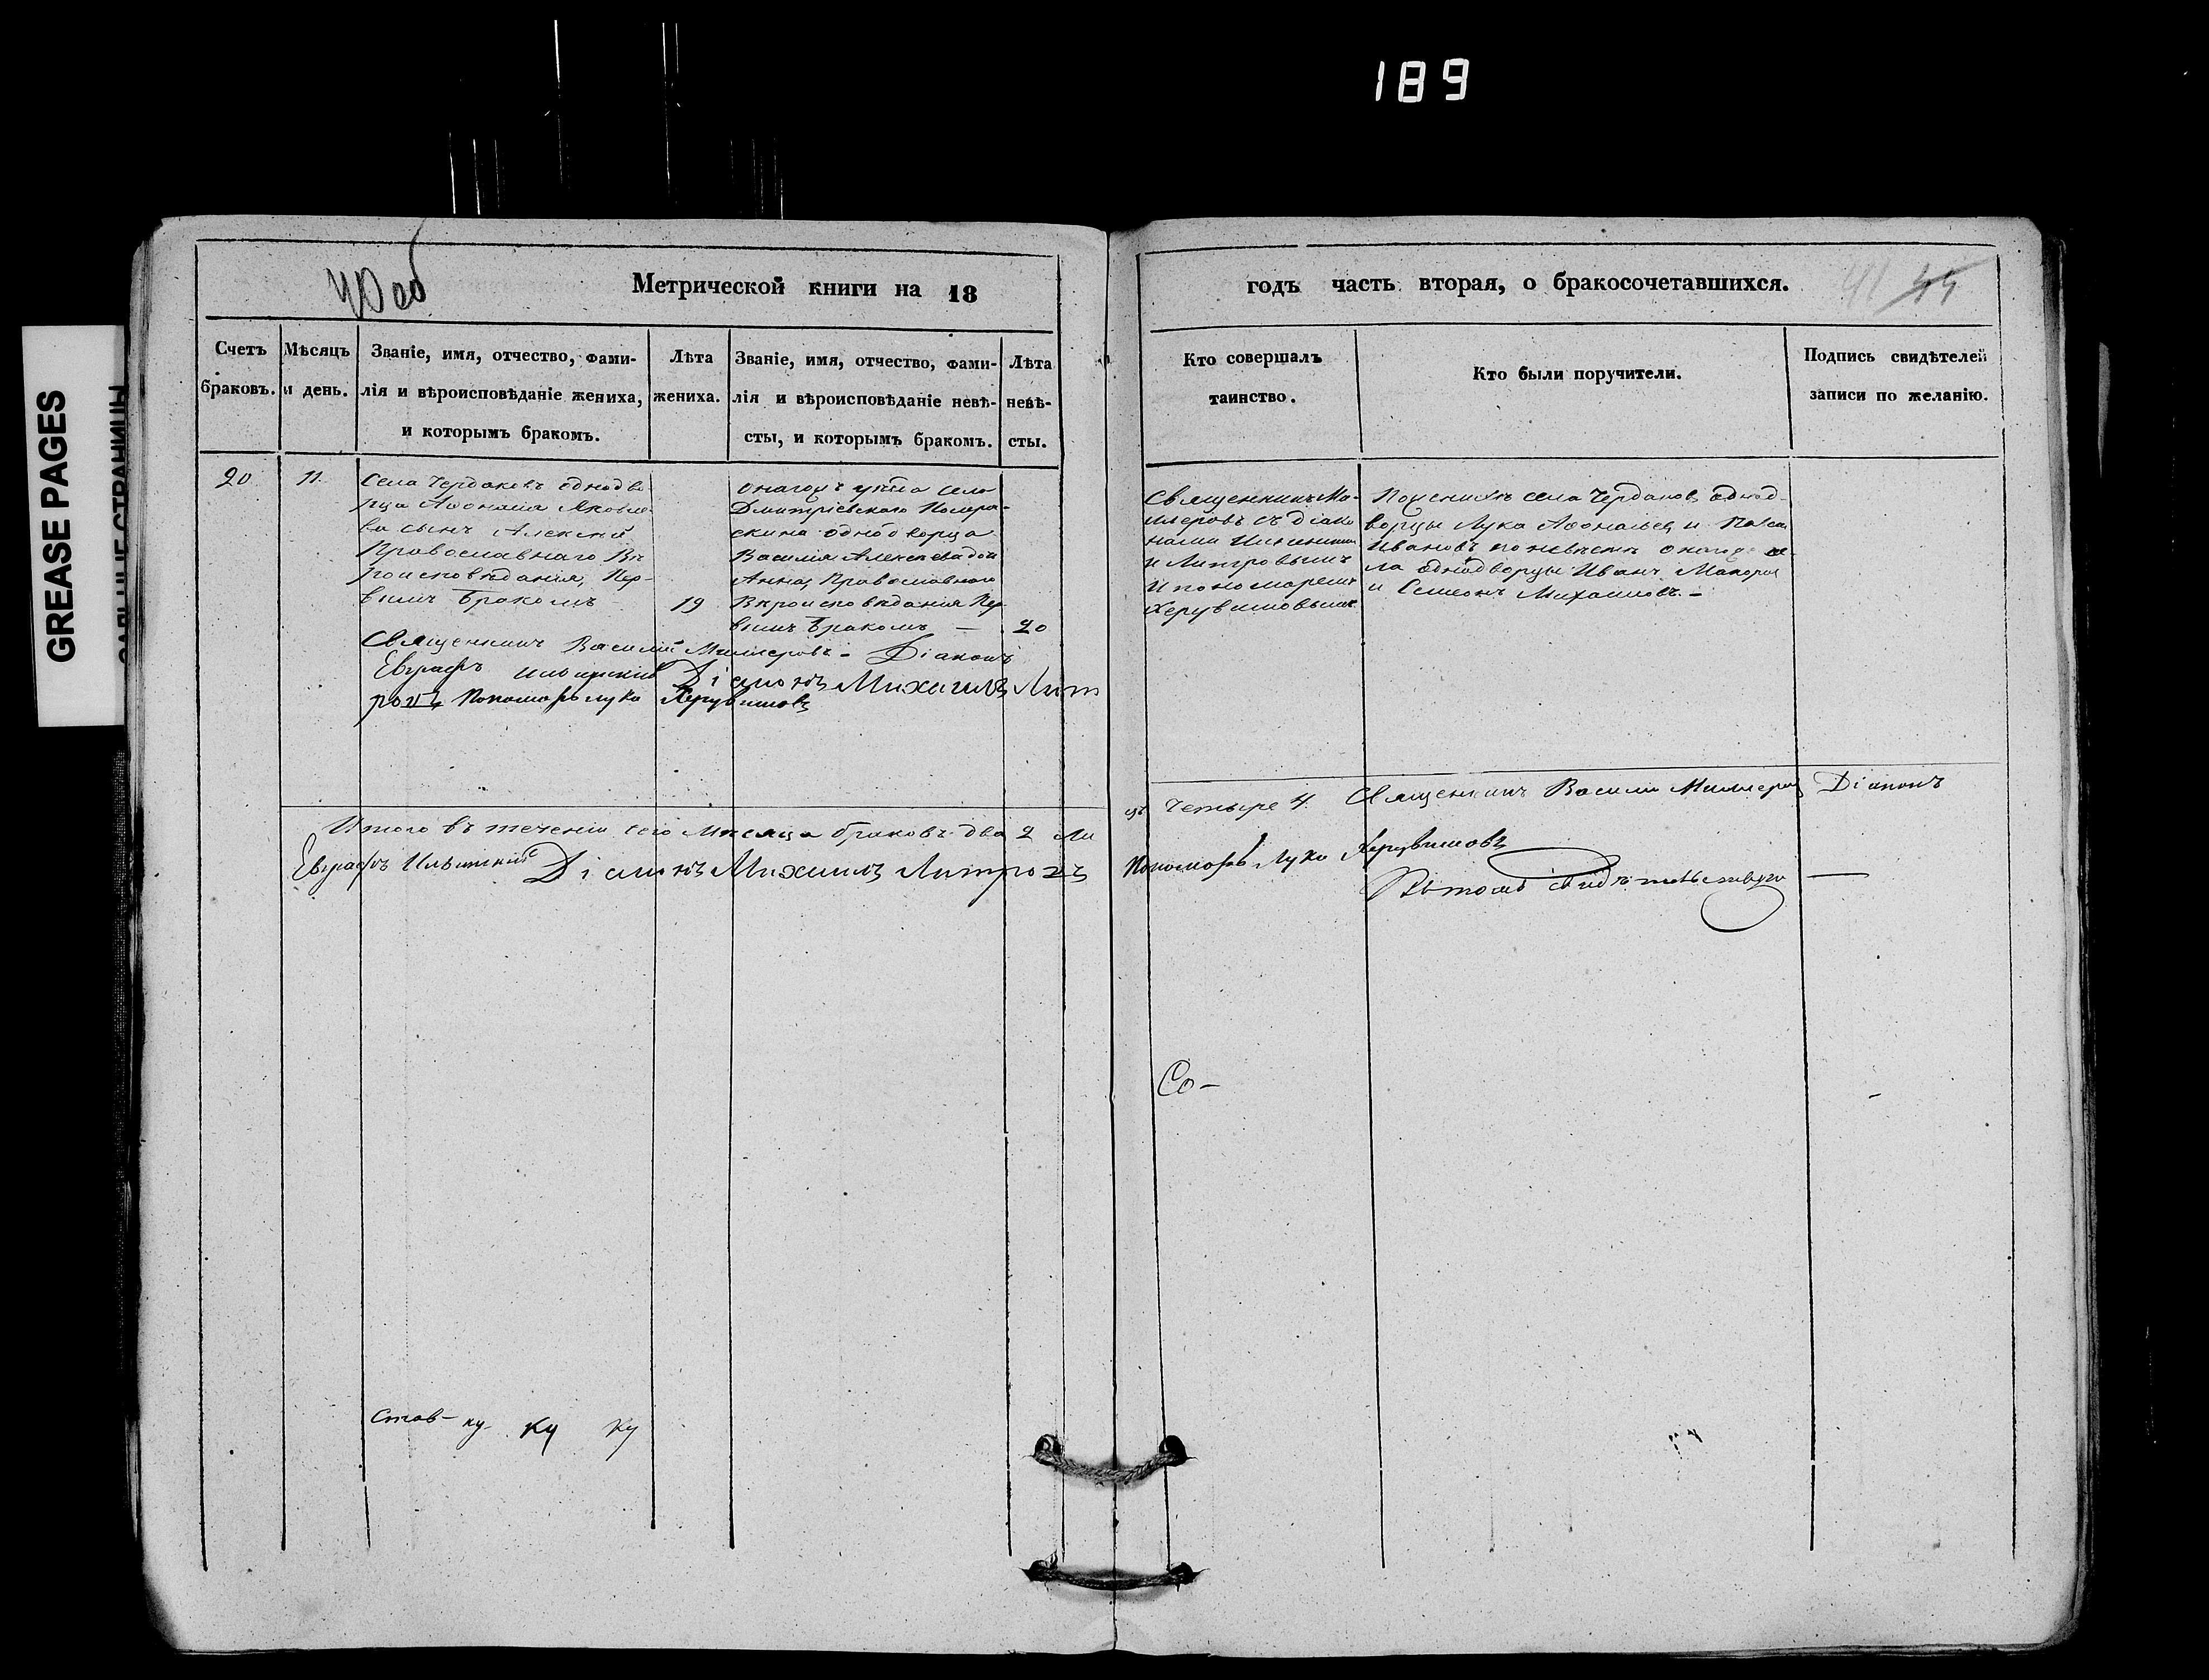 189
GREASE PAGES
40 об
Метрической книги на 18
годъ часть вторая, о бракосочетавшихся.
41 44
Счетъ браковъ.
Мѣсяцъ и день.
Званіе, имя, отчество, фами-
лія и вѣроисповѣданіе жениха,
и которымъ бракомъ.
Лѣта жениха.
Званіе, имя, отчество, фами-
лія и вѣроисповѣданіе невѣ-
сты, и которымъ бракомъ.
Лѣта невѣ-
сты.
Кто совершалъ
таинство.
Кто были поручители.
Подпись свидѣтелей
записи по желанію.
20
11
Села Чердаковъ однодво
рца Афонасія Яковле
ва сынъ Алексѣй
Православнаго Вѣ
роисповѣданія, Пер-
вымъ бракомъ
19
онагожъ уѣзда села
Дмитріевскаго
однодворца
Василія Алексѣева доч
Анна, Православнаго
Вѣроисповѣданія Пер
вымъ бракомъ —
20
Священникъ Ми-
лмеровъ съ діако
нами
и Литровымъ
и пономаремъ
Херувимовымъ
По женихѣ села Чердаковъ однод-
ворцы Лука Афонасьевъ и
Ивановъ по невѣстѣ онагоже се-
ла однодворцы Иванъ
и Семеонъ Михаиловъ. –
Священникъ Василій Милмеровъ – Діаконъ
Евграфъ Діаконъ Михаилъ Лит
ровъ Пономарь Лука Херувимовъ
Итого въ теченіи сего мѣсяца браковъ два 2
четыре 4. Священникъ Василій Милмеровъ Діаконъ
Евграфъ Діаконъ Михаилъ Литровъ
Пономарь Лука Херувимовъ
Въ томъ свидѣтельствую
Со–
став– ку ку ку